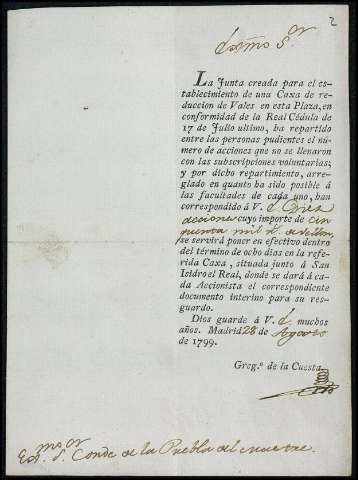 2
Exmo Sor
La Junta creada para el es-
tablecimiento de una Caxa de re-
duccion de Vales en esta Plaza, en
conformidad de la Real Cédula de
17 de Julio ultimo, ha repartido
entre las personas pudientes el nú-
mero de acciones que no se llenaron
con las subscripciones voluntarias;
y por dicho repartimiento, arre-
glado en quanto ha sido posible á
las facultades de cada uno, han
correspondido á V. E. Diez
acciones cuyo importe de cin
quenta mil rs. de vellon,
se servirá poner en efectivo dentro
del término de ocho dias en la refe-
rida Caxa, situada junto á San
Isidro el Real, donde se dará á ca-
da Accionista el correspondiente
documento interino para su res-
guardo.
Dios guarde á V. E. muchos
años. Madrid 28 de Agosto
de 1799.
Greg.º de la Cuesta
Exmo Sor Conde de la Puebla del Maestre.